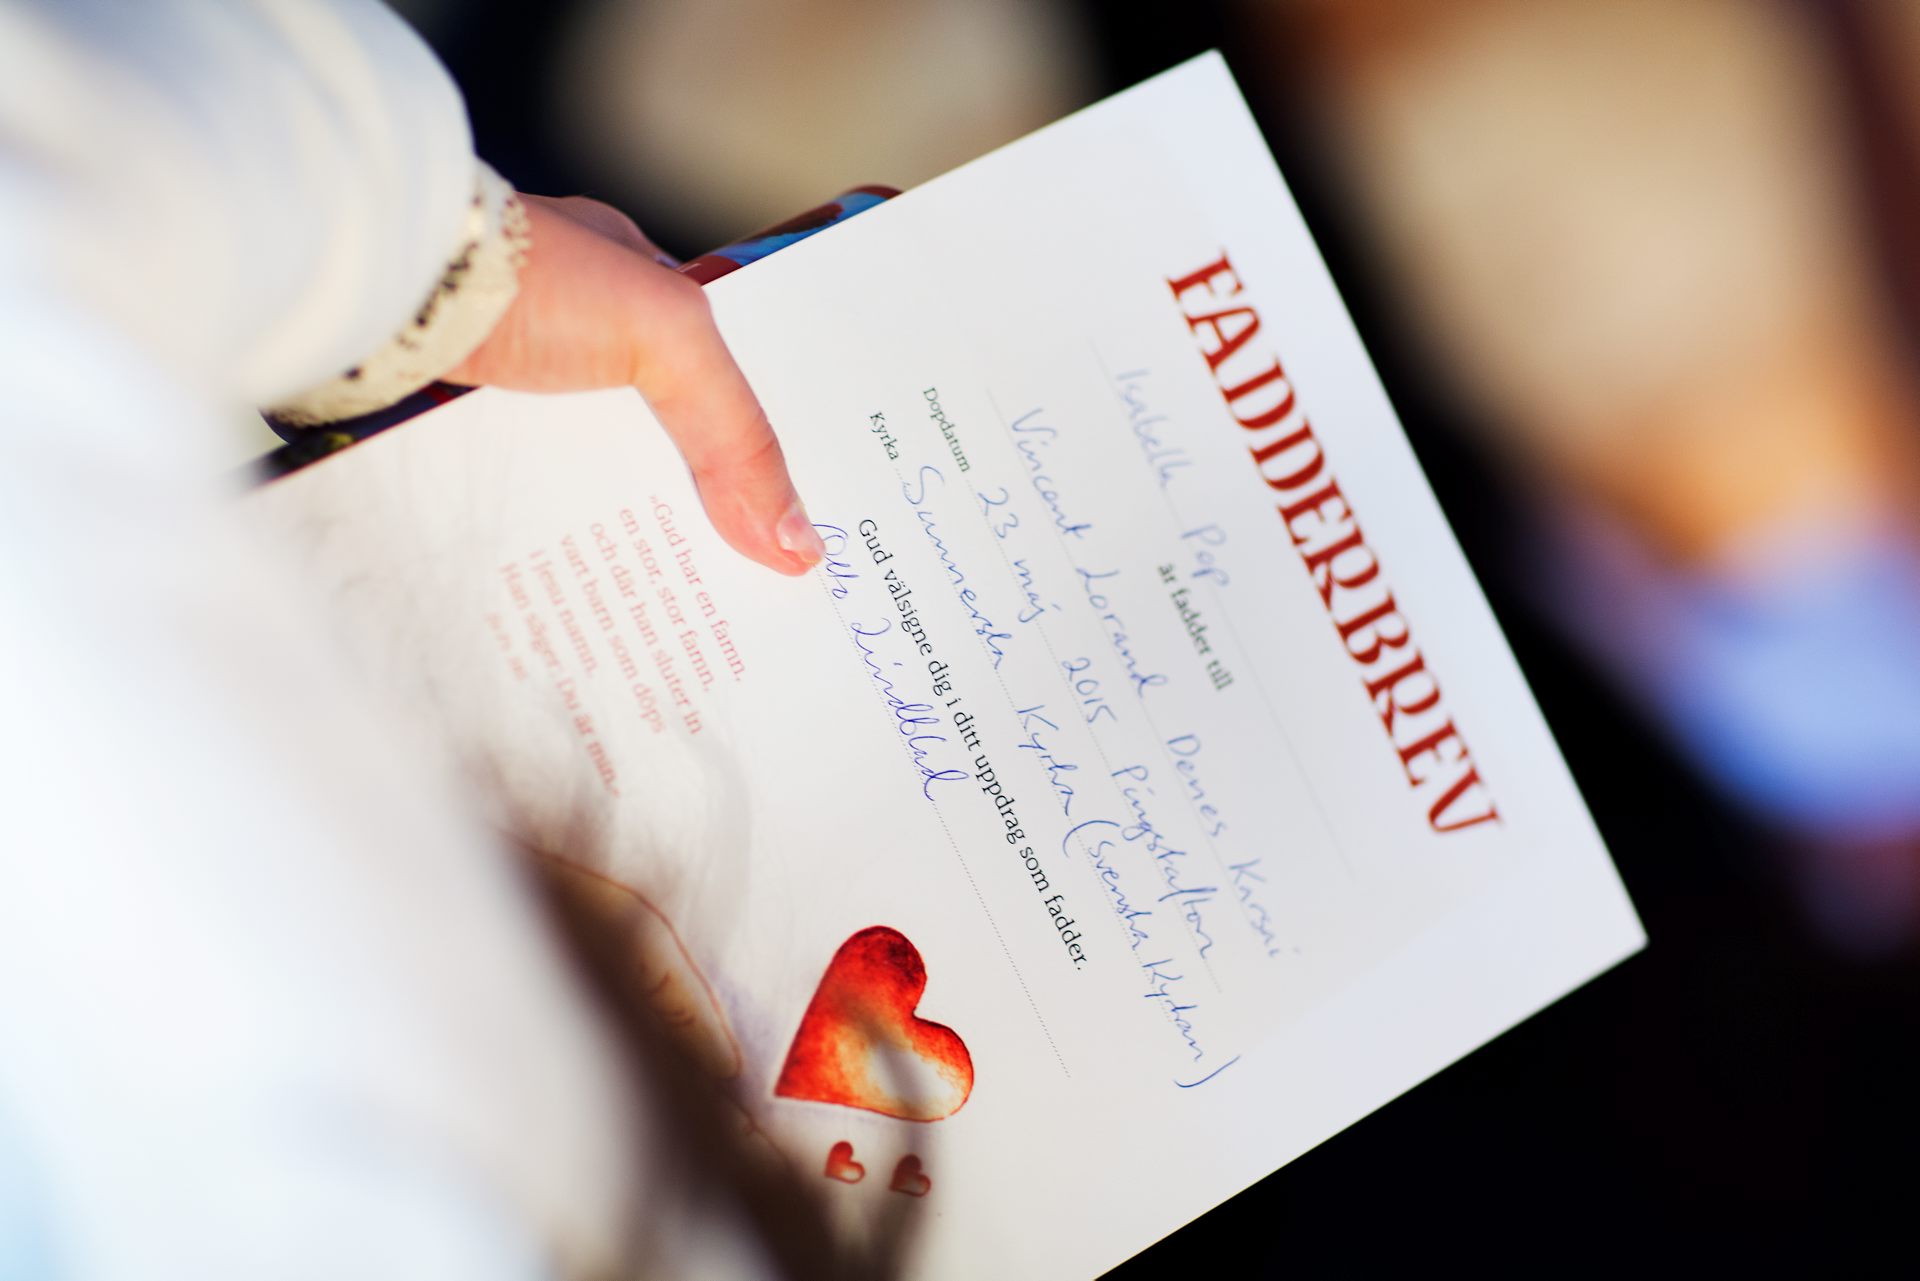 FADDERBREV
Isabella Pop
är fadder till
Vincent Lorand Denes Karsai
Dopdatum 23 maj 2015 Pingstafton
Kyrka Sunnersta Kyrka (Svenska Kyrkan)
Gud välsigne dig i ditt uppdrag som fadder.
Otto Lindblad
»Gud har en famn,
en stor, stor famn,
och där han sluter in
vart barn som döps
i Jesu namn.
Han säger: Du är min.«